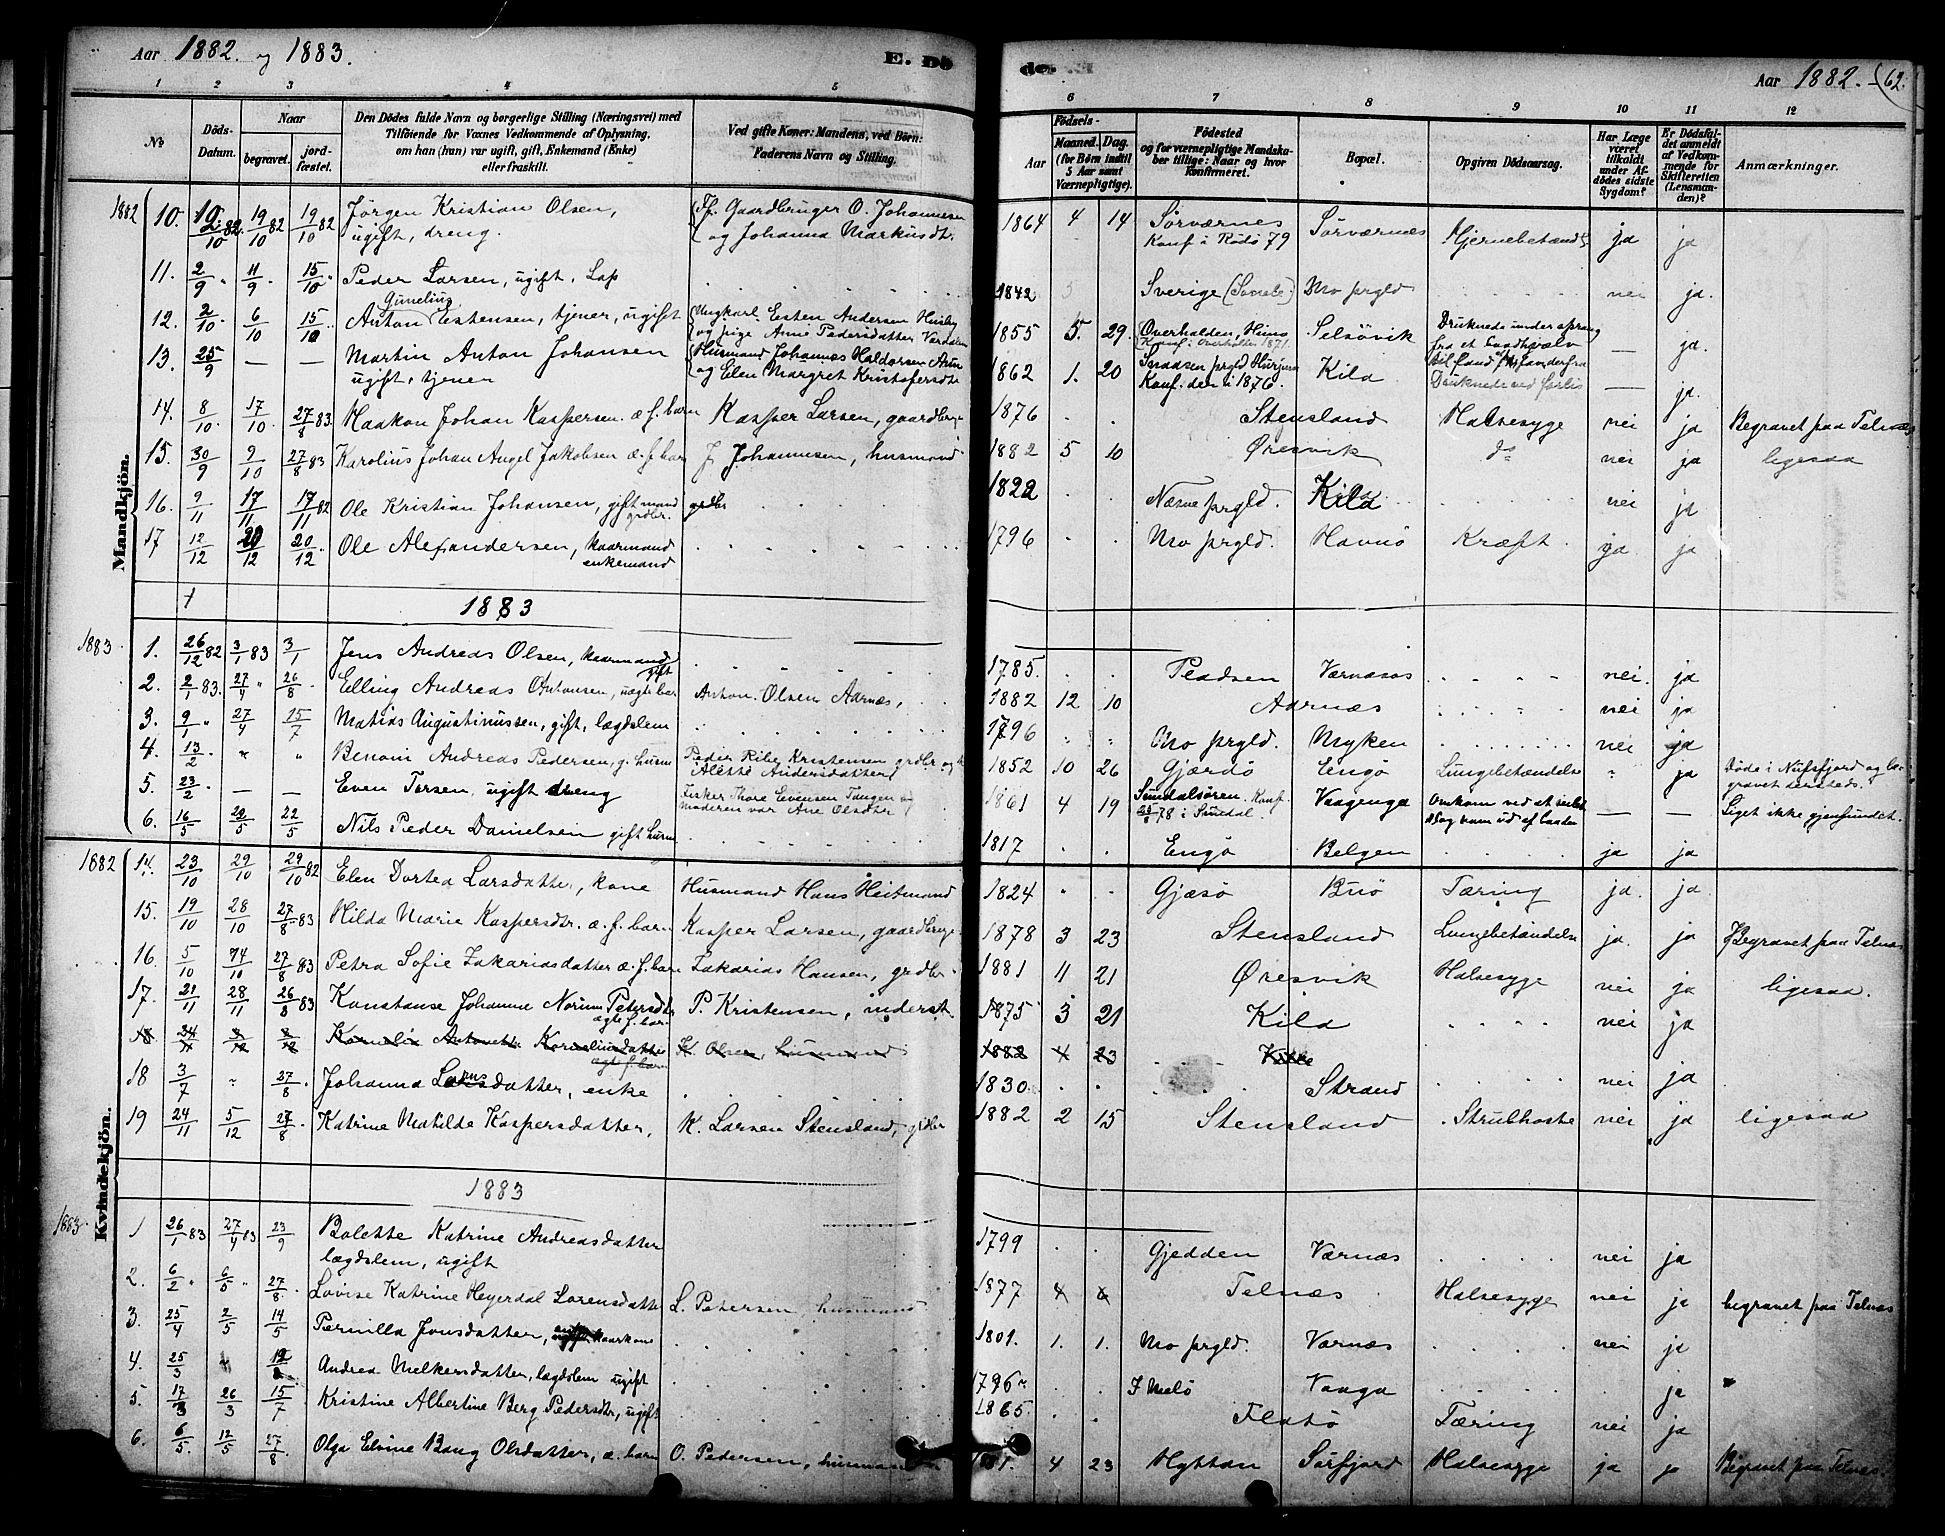 Aar 1882 og 1883.
E. Dö
de
Aar 1882.
62.
1 2 3 4 5 6 7 8 9 10 11 12
No
Döds-Datum.
Naar
begravet.
jord-fæstet.
Den Dödes fulde Navn og borgerlige Stilling (Næringsvei) med
Tilföiende for Voxnes Vedkommende af Oplysning,
om han (hun) var ugift, gift, Enkemand (Enke)
eller fraskilt.
Ved gifte Koner: Mandens, ved Börn:
Faderens Navn og Stilling.
Födsels-
Aar
Maaned. Dag.
(for Börn indtil
5 Aar samt
Værnepligtige).
Födested
og for værnepligtige Mandska-
ber tillige: Naar og hvor
konfirmeret.
Bopæl.
Opgiven Dödsaarsag.
Har Læge
været
tilkaldt
under Af-
dödes sidste
Sygdom?
Er Dödsfal-
det anmeldt
af Vedkom-
mende for
Skifteretten
(Lensman-
den)?
Anmærkninger.
Mandkjön.
1882 10. 19/10 82 19/10 82 Jørgen Kristian Olsen, Gaardbruger O. Johannesen 1864 4 14 Sørværnes Sørværnes Hjernebetænd. ja ja
ugift, dreng. og Johanna Markusdt. Konf. i Rödö 79
11. 2/9 11/9 15/10 Peder Larsen, ugift, Lap 1842 Sverige Mo prgld nei ja.
12. 2/10 6/10 15/10 Anton Estensen, tjener, ugift Ungkarl Esten Andersen Husby 1855 5. 29. Overhalden, Selsövik Druknede under ja.
og pige Ane Pedersdatter
13. 25/9 — — Martin Anton Johansen Husmand Johannes Haldorsen 1862 1. 20 Snaasen prgld Kila Druknede ved — ja.
ugift, tjener og Elen Margret Kristofersdt. Konf. der i 1876.
14. 8/10 17/10 27/8 83. Haakon Johan Kaspersen æ. f. barn Kasper Larsen, gaardbr. 1876 Stensland Halsesyge nei ja Begravet paa Telnæs
15. 30/9 9/10 27/8 83 Karolius Johan Angel Jakobsen æ. f. barn J. Johannesen, husmand 1882 5 10 Øresvik do nei ja ligesaa
16. 9/11 17/11 17/11 82 Ole Kristian Johansen, gift mand grdbr. grdbr 1822 Næsne prgld. Kila nei ja
17 12/12 20/12 20/12 Ole Alexandersen, kaarmand 1796 Mo prgld. Havnö Kræft. ja ja
enkemand
1883
1883 1. 26/12 82 3/1 83 3/1 Jens Andreas Olsen, kaarmand gift 1785. Værnæs nei. ja
2. 2/1 83. 27/4 26/8 Elling Andreas Antonsen, uægte bar Anton Olsen Aarnæs, 1882 12 10 Aarnæs nei ja
3. 9/1 27/4 15/7 Matias Augustinussen, gift, lægdslem 1796 Mo prgld. Myken nei ja
4. 13/2 Benoni Andreas Pedersen, g. husm Peder Kristensen grdbr og 1852 10 26 Gjærdö Engö Lungebetændelse ja Døde i Nufsfjord og be-
Alette Andersdatter gravet dersteds.
5. 23/2 — — Even Torsen, ugift dreng Fisker Thore Evensen Tangen og 1861 4 19 Sundalsören. Konf. Vaagenga Omkom ved at — — Liget ikke gjenfundet.
Moderen var Ane Olsdtr 78 i Sundal.
6. 16/5 22/5 22/5 Nils Peder Danielsen gift husm 1817 Engö Bolgen ja ja
Kvindekjön.
1882 14. 23/10 29/10 29/10 82 Elen Dortea Larsdatter, kone Husmand Hans Heitmand 1824 Gjæsö Buö Tæring ja. ja.
15. 19/10 28/10 27/8 83 Hilda Marie Kaspersdtr. æ. f. barn Kasper Larsen, gaardbruge 1878 3 23 Stensland Lungebetændelse ja. ja Begravet paa Telnæs
16. 5/10 27/8 83 Petra Sofie Zakariasdatter æ. f. barn Zakarias Hansen, grdbr. 1881 11 21 Øresvik Halsesyge nei ja ligesaa.
17. 21/11 28/11 26/8 83 Konstanse Johanne Norum Petersdtr P. Kristensen, inderst. 1875 3 21 Kila nei ja
ægte f. bar
18 24/11 2/12 2/12 Kornelia Antonette Korneliusdatter K. Olsen, husmand 1882 4 23
ægte f. barn
18 3/7 27/8 Johanna Larsdatter, enke 1830 Strand nei ja
19 24/11 5/12 27/8 Katrine Matilde Kaspersdatter, K. Larsen Stensland, grdbr 1882 2 15 Stensland Strubhoste nei ja ligesaa
1883
1883 1 26/1 83 27/4 83 23/9 Bolette Katrine Andreasdatter 1799 Gjedden Værnæs nei ja
lægdslem, ugift
2. 6/2 6/5 27/8 Lovise Katrine Heyerdal Lorensdatter L. Petersen, husmand 1877 4 6 Telnæs Halsesyge nei ja begravet paa Telnæs
3. 25/4 2/5 14/5 Pernilla Jonsdatter, kaarkone 1801. 1. 1. Mo prgld. Værnæs nei ja
4. 25/3 Andrea Melkersdatter, lægdslem ugift 1796 Melö Vaaga ja
5. 17/3 26/3 15/7 Kristine Albertine Berg Pedersdtr, ugift 1865 Flatö Tæring nei ja
6. 6/5 12/5 27/8 Olga Elvine Bang Olsdatter, æ. barn O. Pedersen, husmand 4 23 Hyttan Sörfjord Halsesyge ja ja Begravet paa Telnæs.